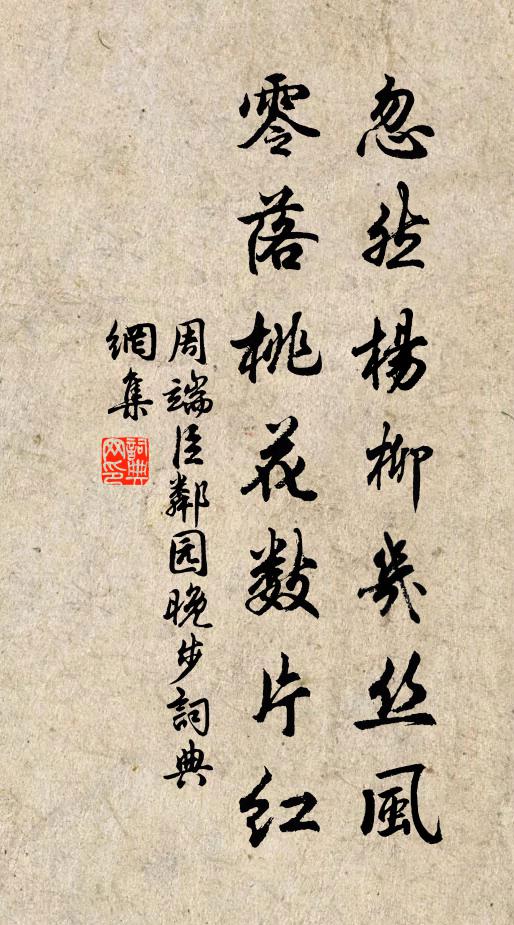 忽然楊柳幾丝風
零落桃花數片紅
周端臣鄰园晚步詞典
網集
詞典
网印